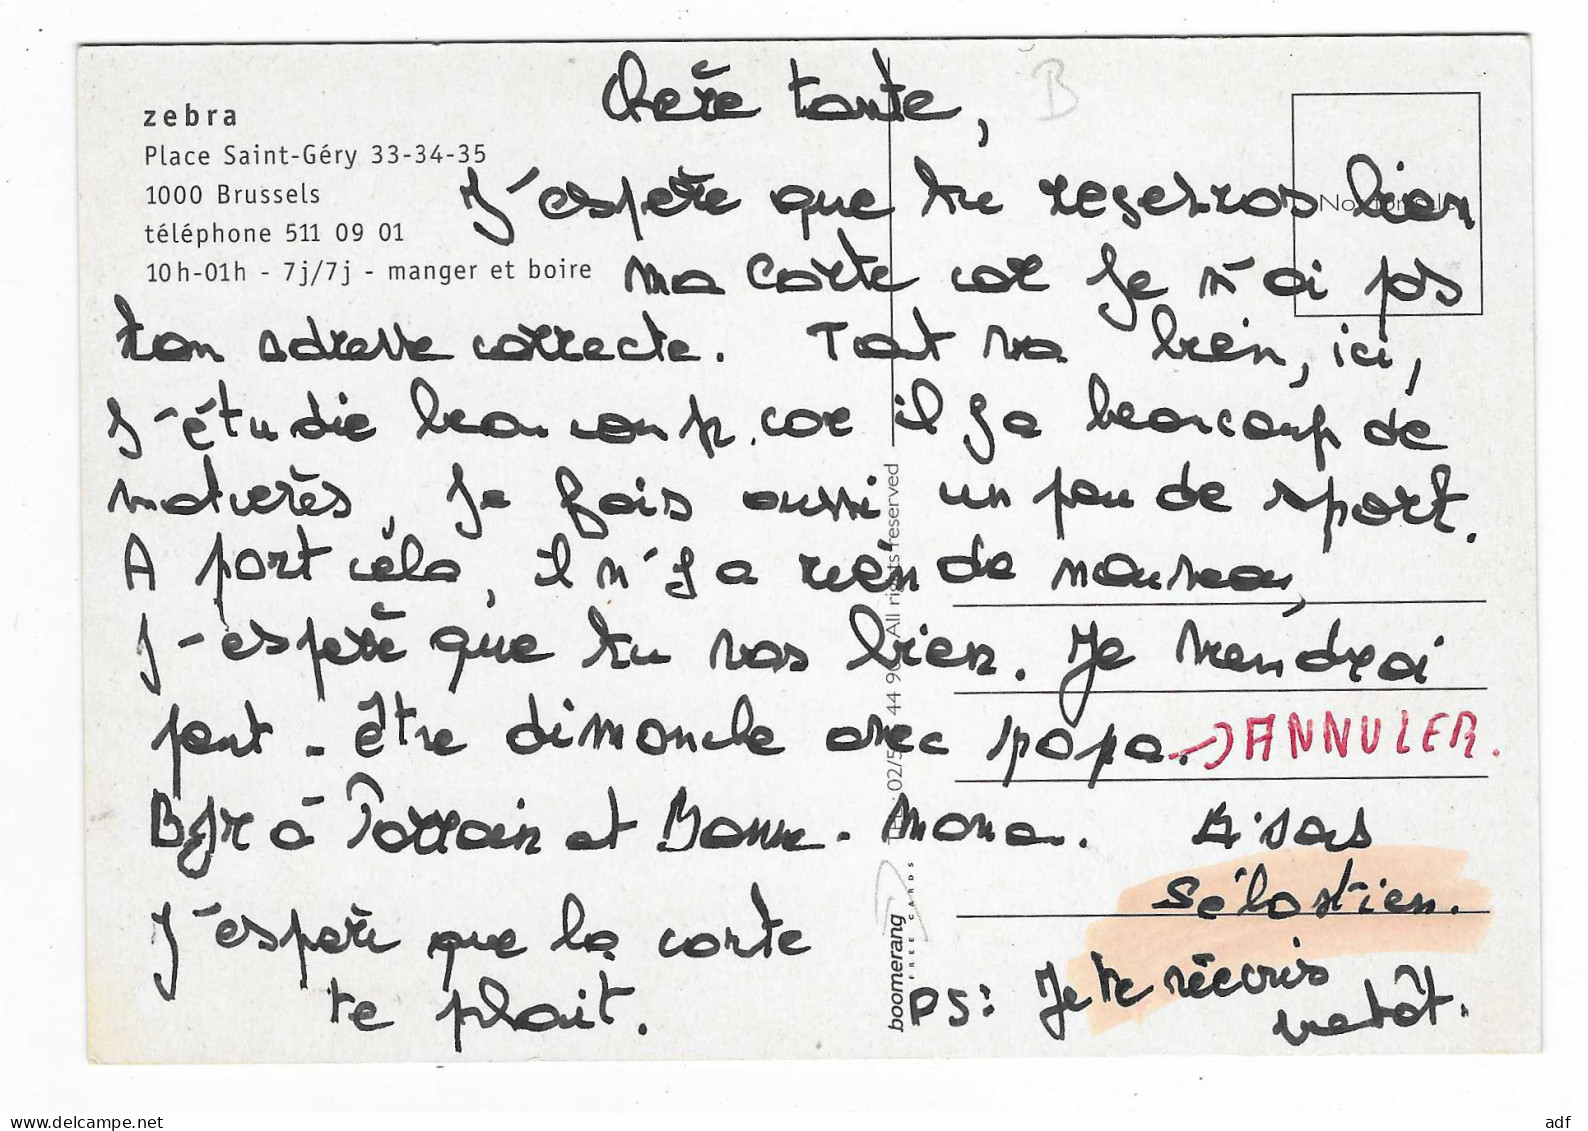 zebra
Place Saint-Géry 33-34-35
1000 Brussels
téléphone 511 09 01
10h-01h - 7j/7j - manger et boire
B
Chère tante,
J'espère que tu recevras bien
ma carte car je n'ai pas
ton adresse correcte. Tout va bien, ici,
j'étudie beaucoup car il y a beaucoup de
matières, je fais aussi un peu de sport.
A part cela, il n'y a rien de nouveau,
j'espère que tu vas bien. Je viendrai
peut-être dimanche avec papa. → ANNULER.
Bjr à Parrain et Bonne-Mona. Bisous
Sébastien.
J'espère que la carte
te plait.
PS: Je te réécris
bientôt.
boomerang
FREE CARDS
All rights reserved
www.delcampe.net
adf